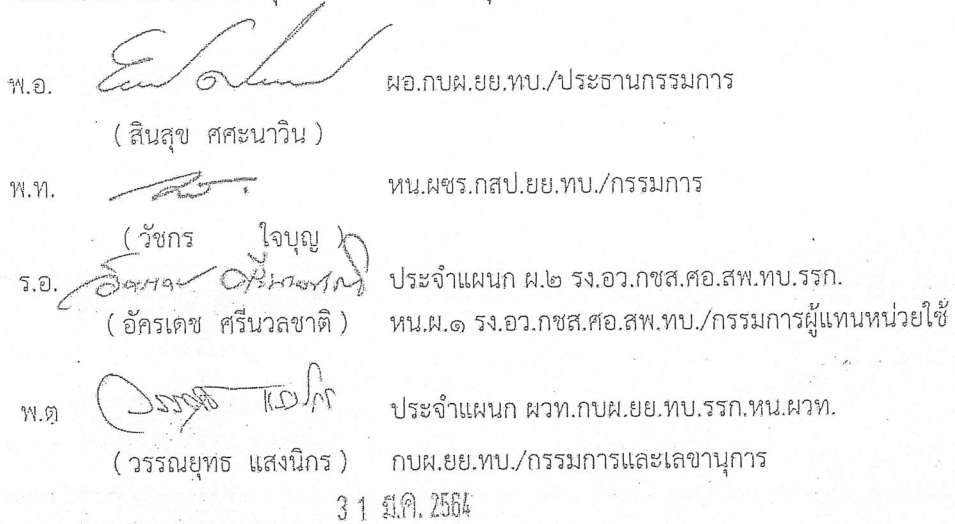 พ.อ. ผอ.กบผ.ยย.ทบ./ประธานกรรมการ
( สินสุข ศศะนาวิน )
พ.ท. หน.ผซร.กสป.ยย.ทบ./กรรมการ
( วัชกร ใจบุญ )
ร.อ. ประจำแผนก ผ.๒ รง.อว.กซส.ศอ.สพ.ทบ.รรก.
( อัครเดช ศรีนวลชาติ ) หน.ผ.๑ รง.อว.กซส.ศอ.สพ.ทบ./กรรมการผู้แทนหน่วยใช้
พ.ต ประจำแผนก ผวท.กบผ.ยย.ทบ.รรก.หน.ผวท.
( วรรณยุทธ แสงนิกร ) กบผ.ยย.ทบ./กรรมการและเลขานุการ
3 1 มี.ค. 2564